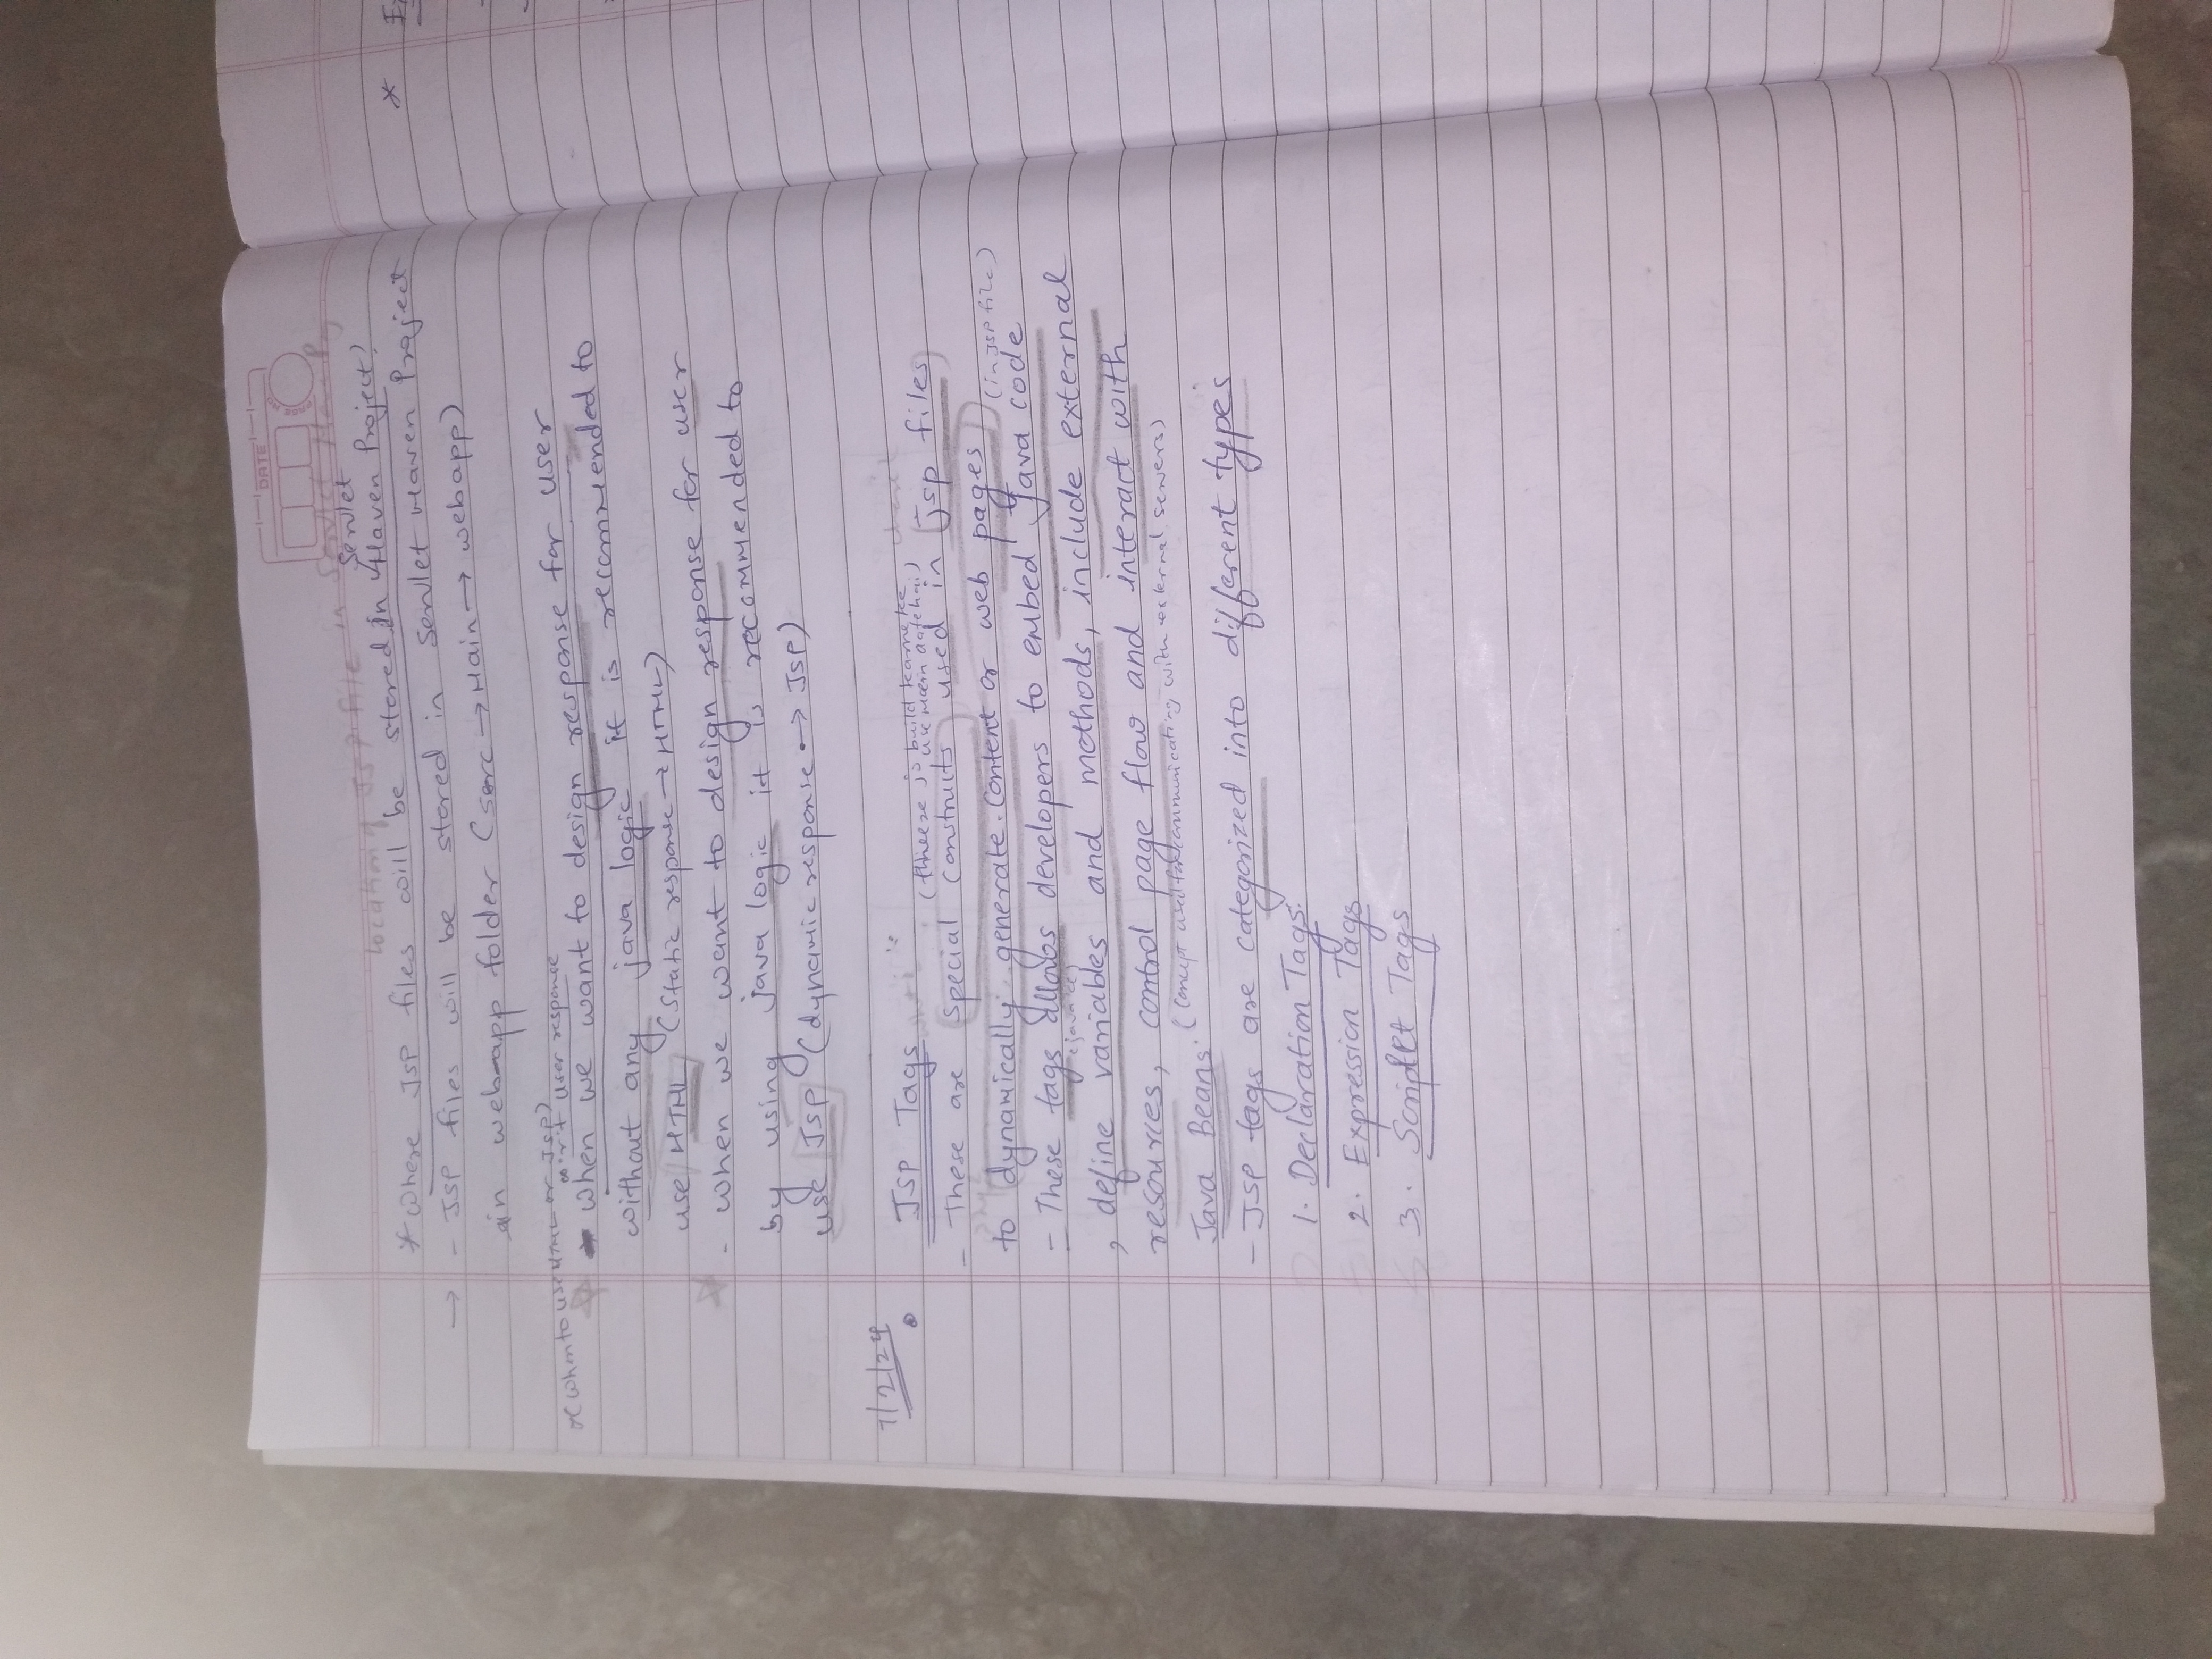 DATE
Location of JSP File in Servlet Maven
Servlet
* Where JSP files will be stored in Maven Project?
→ - JSP files will be stored in Servlet Maven Project
in web-app folder (src → Main → webapp)
* (When to use HTML or JSP)
w.r.t user response
- When we want to design response for user
without any java logic it is recommended to
use HTML (Static response → HTML)
- When we want to design response for user
by using java logic it is recommended to
use JSP (dynamic response → JSP)
7/2/24
JSP Tags
(theeze jo build karne ke
use mein aate hai)
- These are special constructs used in jsp files
to dynamically generate content or web pages
(in JSP file)
- These tags allows developers to embed Java code
, define variables and methods, include external
resources, control page flow and interact with
Java Beans. (Concept used for communicating with external servers)
- JSP tags are categorized into different types
1. Declaration Tags.
2. Expression Tags
3. Scriptlet Tags
*